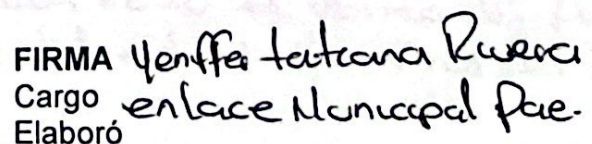 FIRMA Yenffer tatiana Rivera
Cargo enlace Municipal Pae.
Elaboró